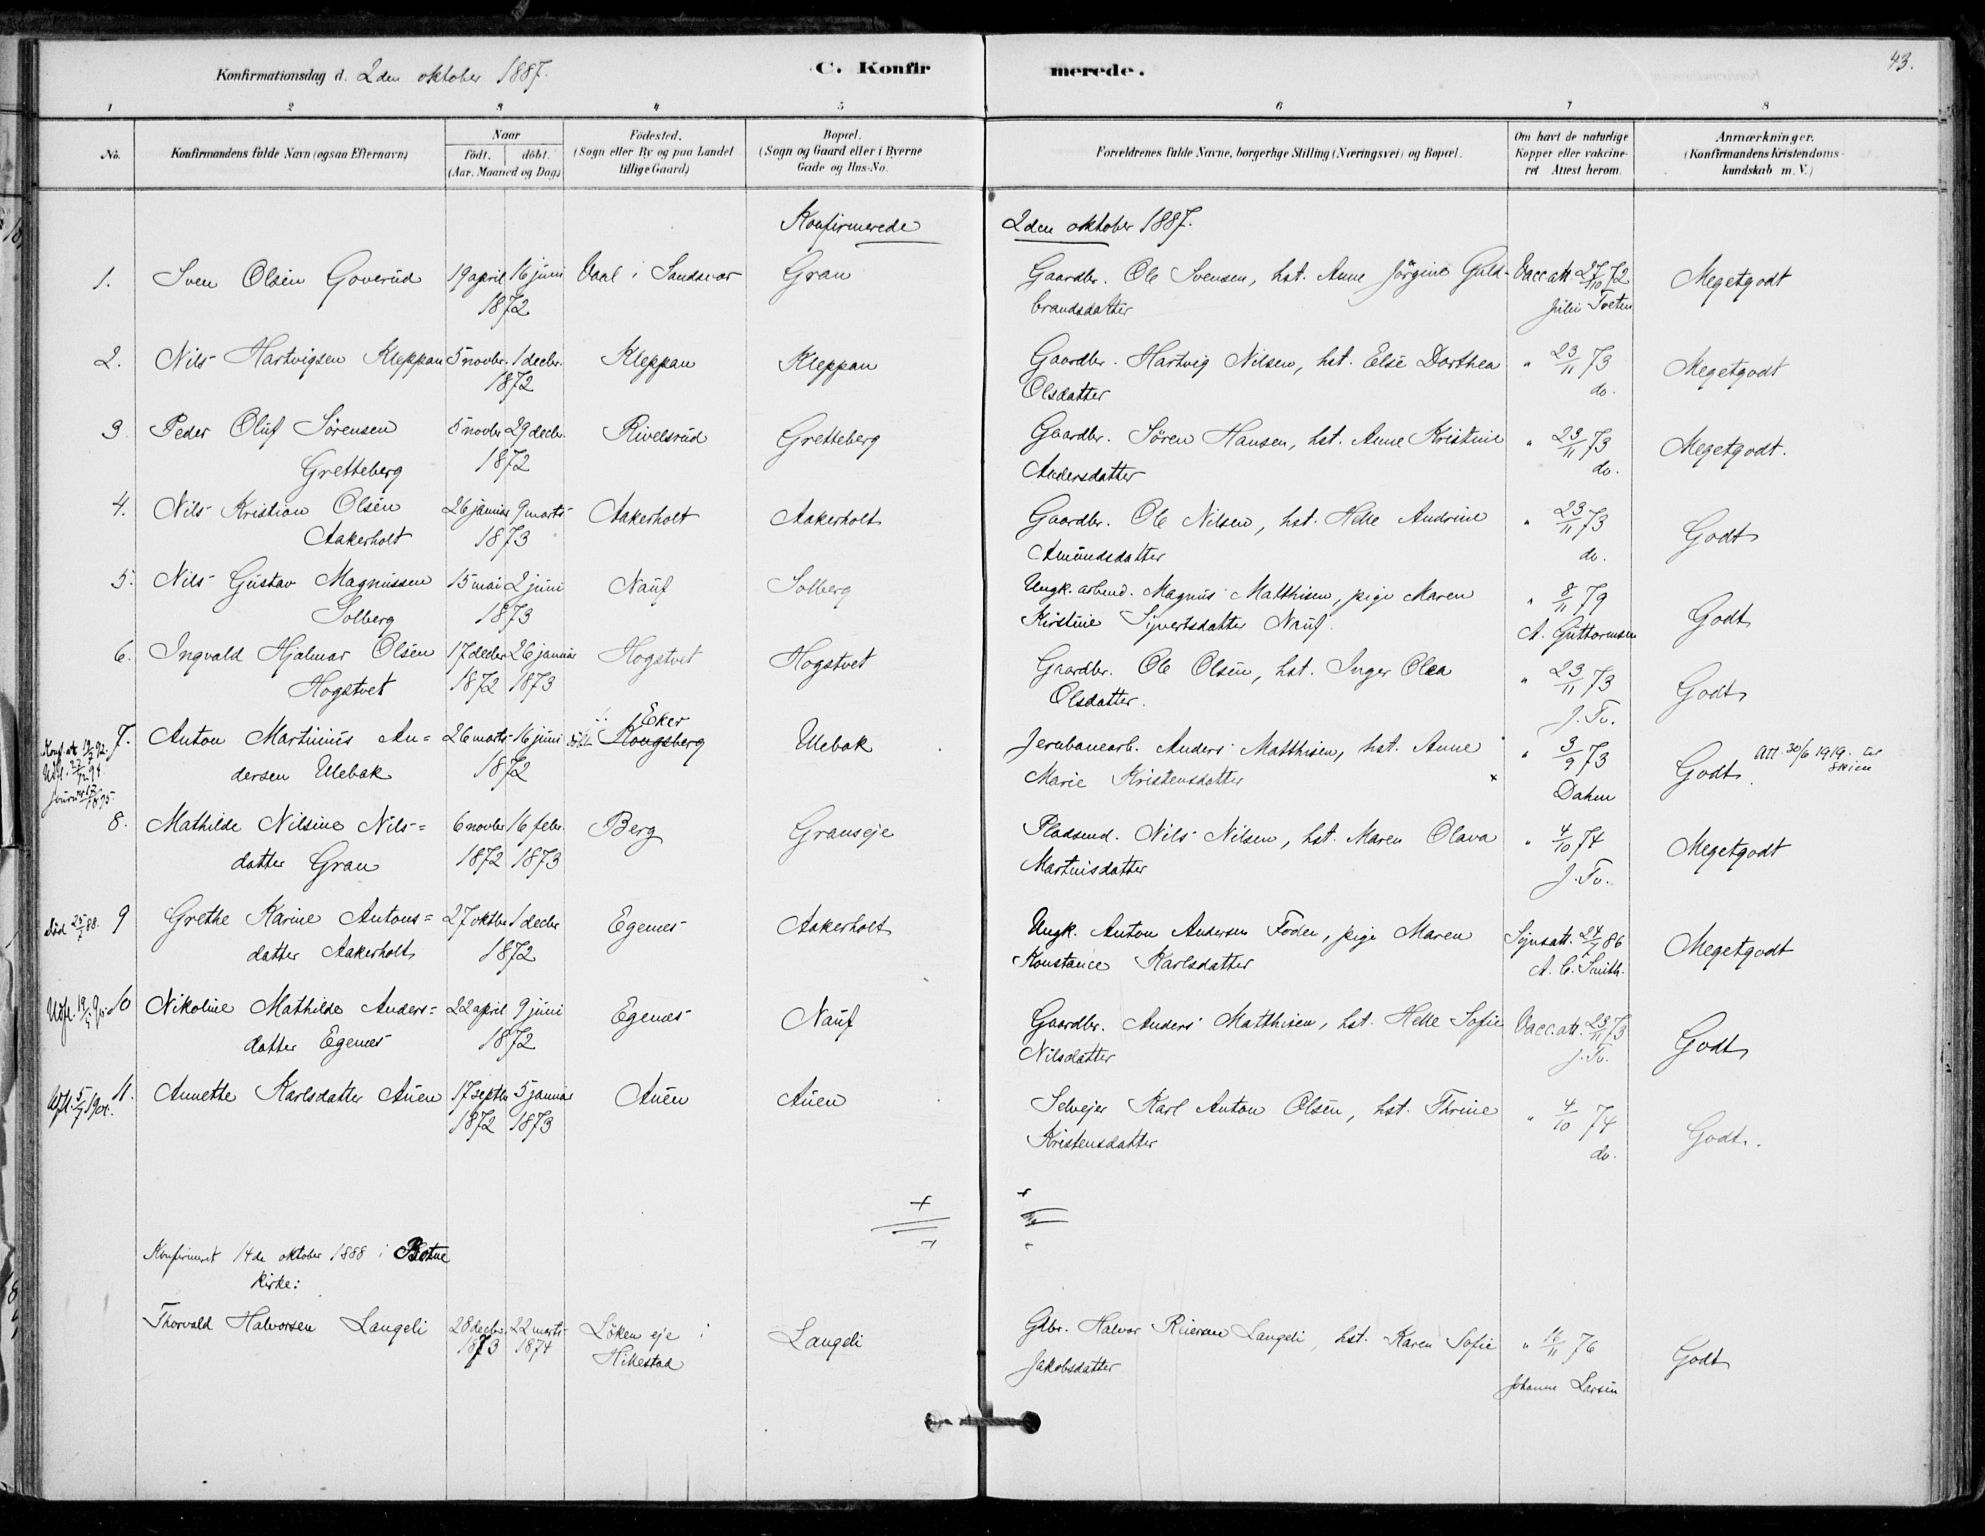 Konfirmationsdag d. 2den oktober 1887.
C. Konfirmerede.
43.
1 2 3 4 5 6 7 8
No.
Konfirmandens fulde Navn (ogsaa Efternavn)
Naar
født. døbt.
(Aar, Maaned og Dag)
Fødested.
(Sogn eller By og paa Landet
tillige Gaard)
Bopæl.
(Sogn og Gaard eller i Byerne
Gade og Hus-No.
Forældrenes fulde Navne, borgerlige Stilling (Næringsvei) og Bopæl.
Om havt de naturlige
Kopper eller vakcine-
ret Attest herom.
Anmærkninger.
(Konfirmandens Kristendoms-
kundskab m. V.)
Konfirmerede 2den oktober 1887.
1. Sven Olsen Goverud 19 april 16 juni Vaal i Sandsvær Gran Gaardbr. Ole Svensen, hst. Anne Jørgine Guld- Vacc.att. 27/10 72 Megetgodt
1872 brandsdatter Julie Tveten
2. Nils Hartvigsen Kleppan 5 novbr. 1 decbr. Kleppan Kleppan Gaardbr. Hartvig Nilsen, hst. Else Dorthea " 23/11 73 Megetgodt
1872 Olsdatter do.
3. Peder Oluf Sørensen 5 novbr 29 decbr. Rivelsrud Gretteberg Gaardbr. Søren Hansen, hst. Anne Kristine " 23/11 73 Megetgodt.
Gretteberg 1872 Andersdatter do.
4. Nils Kristian Olsen 26 januar 9 marts Aakerholt Aakerholt Gaardbr. Ole Nilsen, hst. Helle Andrine " 23/11 73 Godt
Aakerholt 1873 Amundsdatter do.
5. Nils Gustav Magnussen 15 mai 2 juni Nauf Solberg Ungk. arbeid. Magnus Matthisen, pige Maren " 8/11 79 Godt
Solberg 1873 Kirstine Syvertsdatter Nauf. A. Guttormsen
6. Ingvald Hjalmar Olsen 17 decbr 26 januar Hogstvet Hogstvet Gaardbr. Ole Olsen, hst. Inger Olea " 23/11 73 Godt
Hogstvet 1872 1873 Olsdatter. J. Tv.
Eker
7. Anton Martinius An= 26 marts 16 juni Kongsberg Ulebak Jernbanearb. Anders Matthisen, hst. Anne " 3/9 73 Godt. Att. 30/6 1919. til Skien
dersen Ulebak 1872 Marie Kristensdatter x Dahm
8. Mathilde Nilsine Nils= 6 novbr 16 febr. Berg Granseje Pladsmd. Nils Nilsen, hst. Maren Olava " 4/10 74 Megetgodt
datter Gran 1872 1873 Martinsdatter J. Tv.
Død 25/7 88. 9 Grethe Karine Antons= 27 oktbr 1 decbr Egenes Aakerholt Ungk. Anton Andersen Foden, pige Maren Synsatt. 24/7 86 Megetgodt
datter Aakerholt 1872 Konstance Karlsdatter A. C. Smith.
10 Nikoline Mathilde Anders= 22 april 9 juni Egenes Nauf Gaardbr. Anders Matthisen, hst. Helle Sofie Vacc.att. 23/11 73 Godt
datter Egenes 1872 Nilsdatter J. Tv.
11. Annette Karlsdatter Auen 17 septbr 5 januar Auen Auen Selvejer Karl Anton Olsen, hst. Thrine " 4/10 74 Godt.
1872 1873 Kristensdatter do.
Konfirmeret 14de oktober 1888 i Botne
Kirke:
Thorvald Halvorsen Langeli 28 decbr. 22 marts Løken eje i Langeli Gdbr. Halvor Reiersen Langeli, hst. Karen Sofie " 76 Godt
1873 1874 Hillestad Jakobsdatter Johanne Larsen